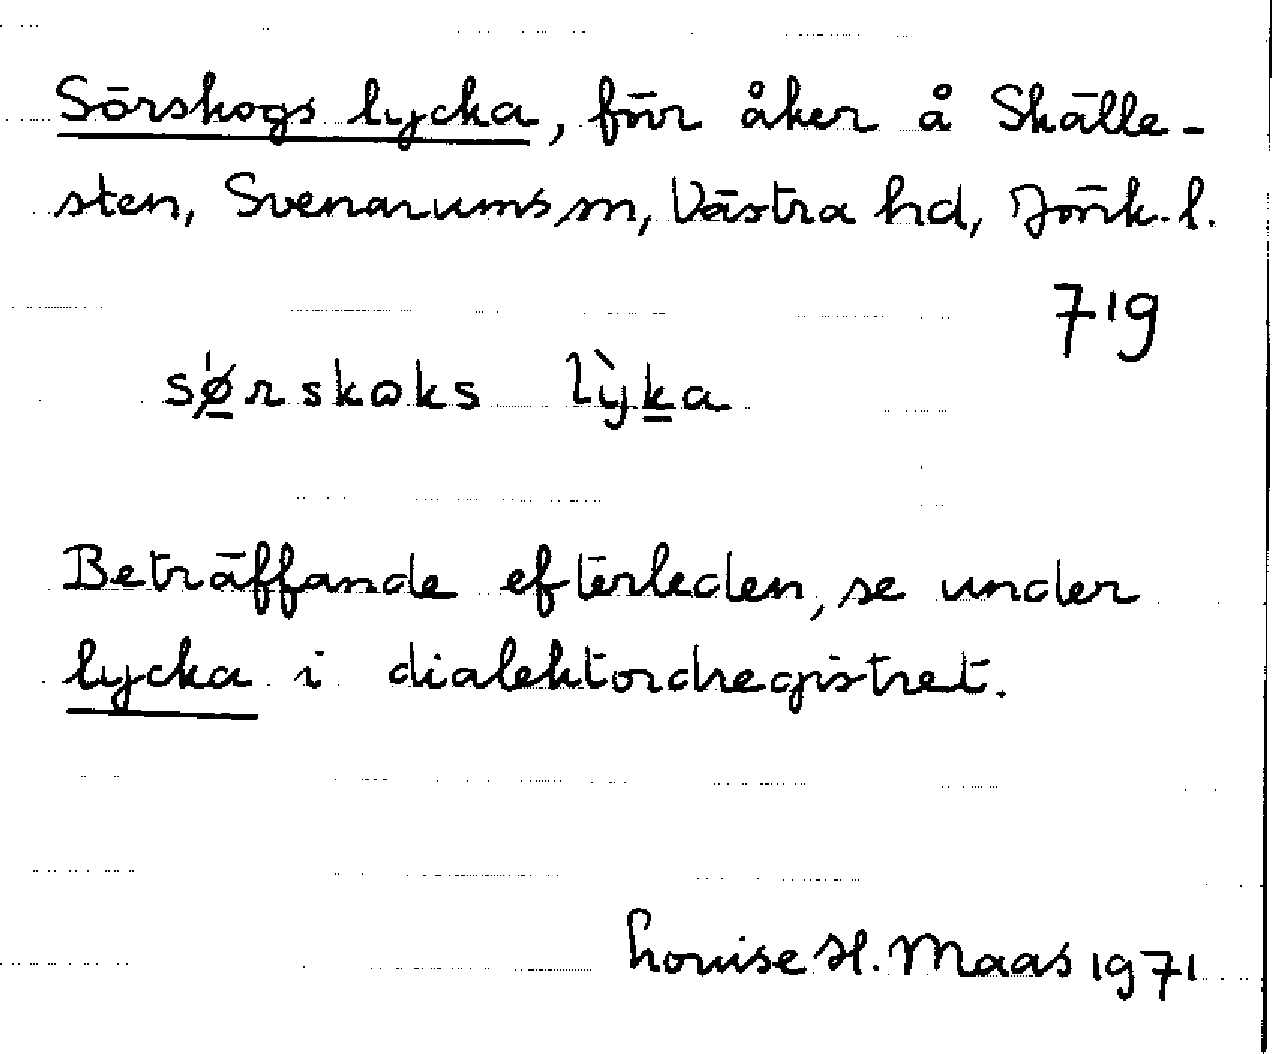 Sörskogs lycka, för åker å Skälle-
sten, Svenarums sn, Västra hd, Jönk. l.
719
sø̱rskɷks lỳḵa
Beträffande efterleden, se under
lycka i dialektordregistret.
Louise H. Maas 1971